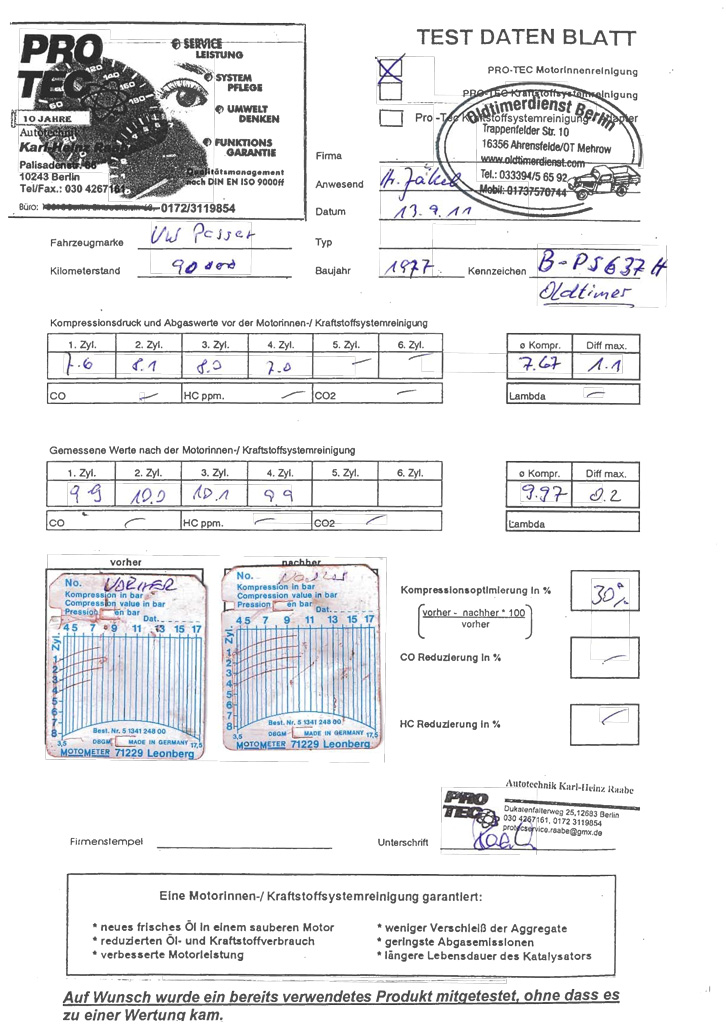 PRO TEC
SERVICE LEISTUNG
SYSTEM PFLEGE
UMWELT DENKEN
FUNKTIONS GARANTIE
10 JAHRE
Autotechnik
Karl-Heinz Raabe
10243 Berlin
Tel/Fax.: 030 4267161
Qualitätsmanagement
nach DIN EN ISO 9000ff
Büro: 0172/3119854
TEST DATEN BLATT
PRO-TEC Motorinnenreinigung
PRO-TEC Kraftstoffsystemreinigung
Pro-Tec Kraftstoffsystemreinigung Adapter
Oldtimerdienst Berlin
Trappenfelder Str. 10
16356 Ahrensfelde/OT Mehrow
www.oldtimerdienst.com
Tel.: 033394/5 65 92
Mobil: 01737570744
Firma
Anwesend H. Jäkel
Datum 13.9.11
Fahrzeugmarke VW Passat Typ
Kilometerstand 90 000 Baujahr 1977 Kennzeichen B-PS 637 H
Oldtimer
Kompressionsdruck und Abgaswerte vor der Motorinnen-/ Kraftstoffsystemreinigung
1. Zyl. 2. Zyl. 3. Zyl. 4. Zyl. 5. Zyl. 6. Zyl. ø Kompr. Diff max.
7.6 8.1 8.0 7.0 — — 7.67 1.1
CO — HC ppm. — CO2 — Lambda —
Gemessene Werte nach der Motorinnen-/ Kraftstoffsystemreinigung
1. Zyl. 2. Zyl. 3. Zyl. 4. Zyl. 5. Zyl. 6. Zyl. ø Kompr. Diff max.
9.9 10.0 10.1 9.9 9.97 0.2
CO — HC ppm. — CO2 — Lambda
vorher nachher
No. VORHER
Kompression in bar
Compression value in bar
Pression en bar
Dat.
4 5 7 9 11 13 15 17
Zyl.
1
2
3
4
5
6
7
8
Best. Nr. 5 1341 248 00
3,5 DBGM MADE IN GERMANY 17,5
MOTOMETER 71229 Leonberg
No.
Kompression in bar
Compression value in bar
Pression en bar
Dat.
4 5 7 9 11 13 15 17
Zyl.
1
2
3
4
5
6
7
8
Best. Nr. 5 1341 248 00
3,5 DBGM MADE IN GERMANY 17,5
MOTOMETER 71229 Leonberg
Kompressionsoptimierung in % 30%
vorher - nachher * 100
vorher
CO Reduzierung in % —
HC Reduzierung in % —
Autotechnik Karl-Heinz Raabe
PRO TEC
Dukatenfalterweg 25, 12683 Berlin
030 4267161, 0172 3119854
protecservice.raabe@gmx.de
Firmenstempel Unterschrift
Eine Motorinnen-/ Kraftstoffsystemreinigung garantiert:
* neues frisches Öl in einem sauberen Motor
* reduzierten Öl- und Kraftstoffverbrauch
* verbesserte Motorleistung
* weniger Verschleiß der Aggregate
* geringste Abgasemissionen
* längere Lebensdauer des Katalysators
Auf Wunsch wurde ein bereits verwendetes Produkt mitgetestet, ohne dass es
zu einer Wertung kam.